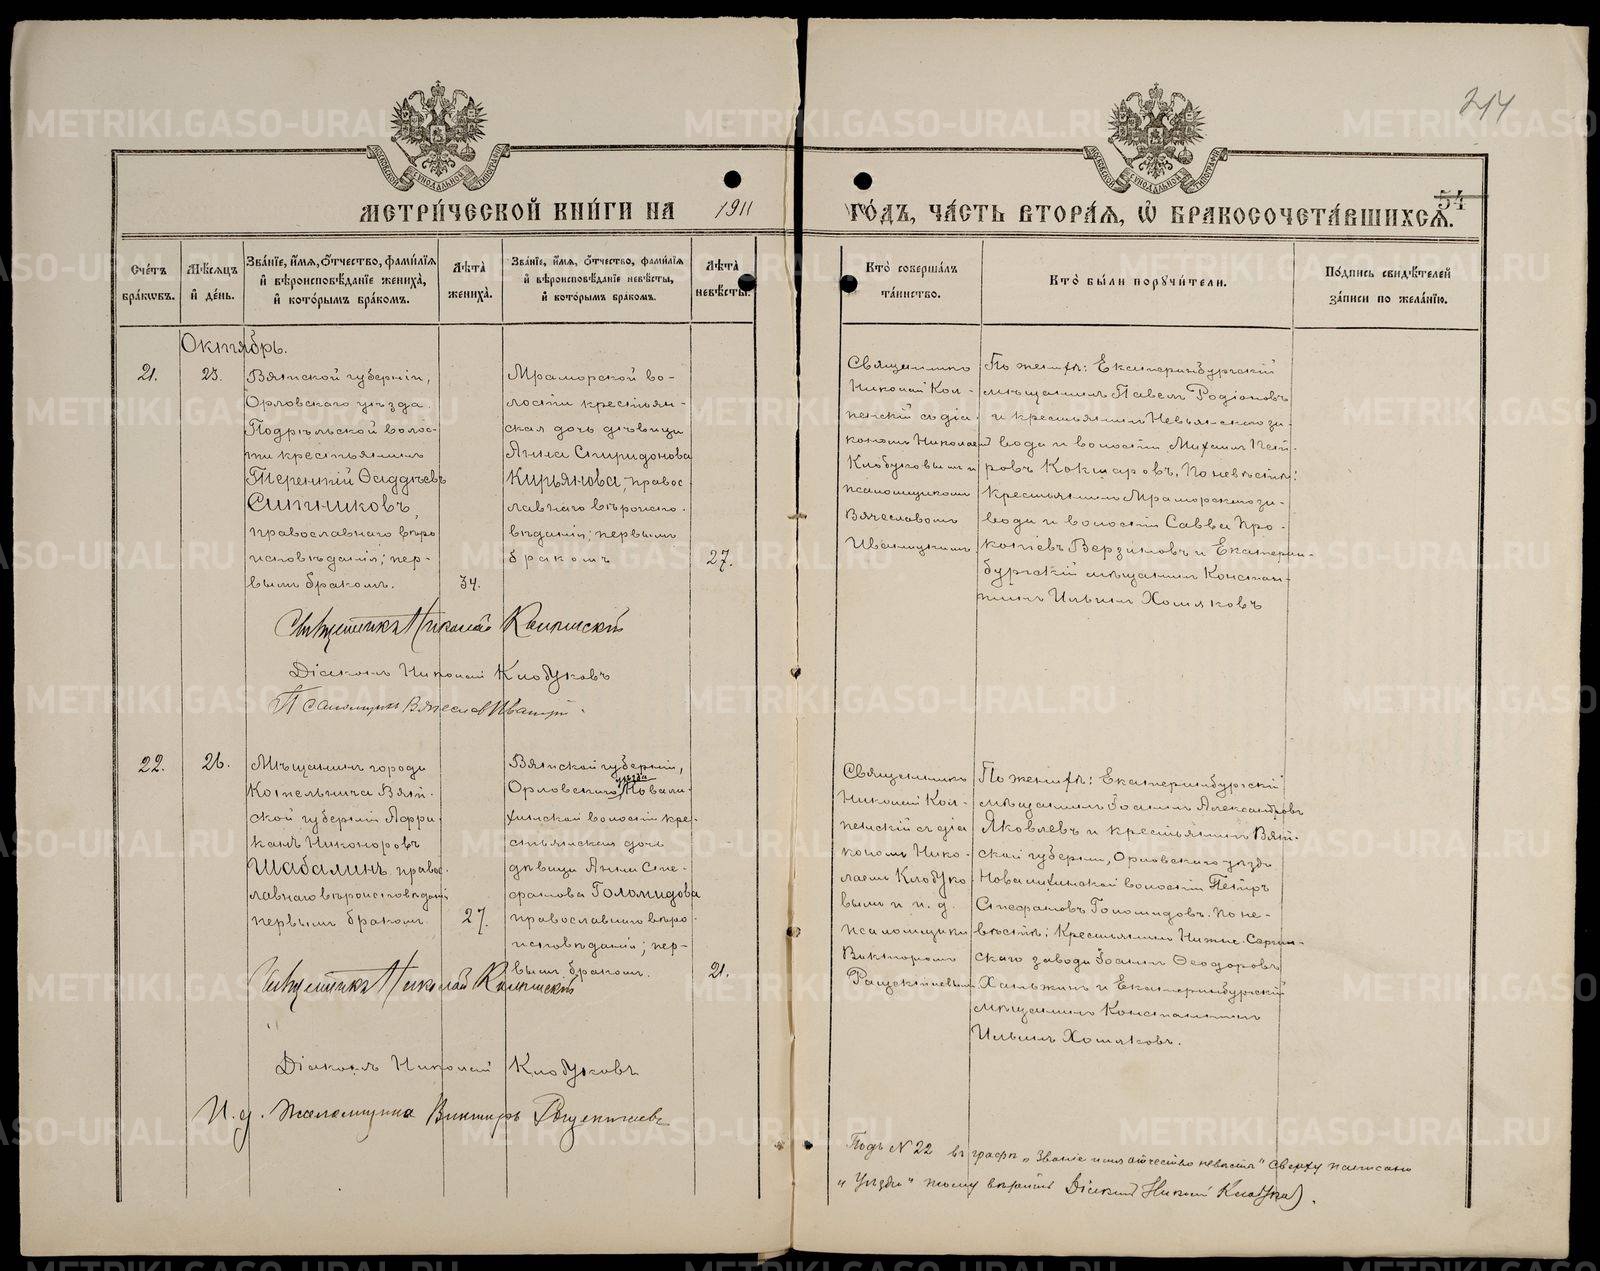 214
54
МЕТРИЧЕСКОЙ КНИГИ НА 1911 ГОДЪ, ЧАСТЬ ВТОРАЯ, Ѡ БРАКОСОЧЕТАВШИХСЯ.
Счетъ браковъ.
Мѣсяцъ и день.
Званіе, имя, отчество, фамилія
и вѣроисповѣданіе жениха,
и которымъ бракомъ.
Лѣта жениха.
Званіе, имя, отчество, фамилія
и вѣроисповѣданіе невѣсты,
и которымъ бракомъ.
Лѣта невѣсты.
Кто совершалъ таинство.
Кто были поручители.
Подпись свидѣтелей
записи по желанію.
Октябрь.
21.
23.
Вятской губерніи,
Орловскаго уѣзда
Подрѣльской волос-
ти крестьянинъ
Терентій Ѳаддѣевъ
Ситниковъ,
православнаго вѣро
исповѣданія; пер-
вымъ бракомъ.
34.
Мраморской во-
лости крестьян-
ская дочь дѣвица
Анна Спиридонова
Кирьянова, правос
лавнаго вѣроиспо-
вѣданія; первымъ
бракомъ
27.
Священникъ
Николай Кол-
пенскій съ діа
кономъ Николаемъ
Клобуковымъ и
псаломщикомъ
Вячеславомъ
Иваницкимъ
По женихѣ: Екатеринбургскій
мѣщанинъ Павелъ Родіоновъ
и крестьянинъ Невьянскаго за-
вода и волости Михаилъ Пет-
ровъ Кокшаровъ. По невѣстѣ:
крестьянинъ Мраморскаго за-
вода и волости Савва Про-
копіевъ Верзиловъ и Екатерин-
бургскій мѣщанинъ Констан-
тинъ Ильинъ Хомяковъ
Священникъ Николай
Діаконъ Николай Клобуковъ
Псаломщикъ Вячеслав Иваницкій.
22.
26.
Мѣщанинъ города
Котельнича Вят-
ской губерніи Афри
канъ Никоноровъ
Шабалинъ правос
лавнаго вѣроисповѣданія
первымъ бракомъ
27.
Вятской губерніи,
Орловскаго уѣзда Новали-
хинской волости кре-
стьянская дочь
дѣвица Анна Сте-
фанова Голомидова
православнаго вѣро-
исповѣданія; пер-
вымъ бракомъ.
21.
Священникъ
Николай Кол-
пенскій съ діа
кономъ Нико-
лаемъ Клобуко
вымъ и и. д.
псаломщика
Викторомъ
По женихѣ: Екатеринбургскій
мѣщанинъ Іоаннъ Александровъ
Яковлевъ и крестьянинъ Вят-
ской губерніи, Орловскаго уѣзда
Новалихинской волости Петръ
Стефановъ Голомидовъ. По не-
вѣстѣ: Крестьянинъ Нижне-Сергин-
скаго завода Іоаннъ Ѳеодоровъ
и Екатеринбургскій
мѣщанинъ Константинъ
Ильинъ Хомяковъ.
Священникъ Николай
Діаконъ Николай Клобуковъ
И. д. псаломщика Викторъ
Подъ № 22 въ графѣ „Званіе имя отчество невѣсты" сверху написано
„уѣзда" тому вѣрить Діаконъ Николай Клобуковъ.
METRIKI.GASO-URAL.RU